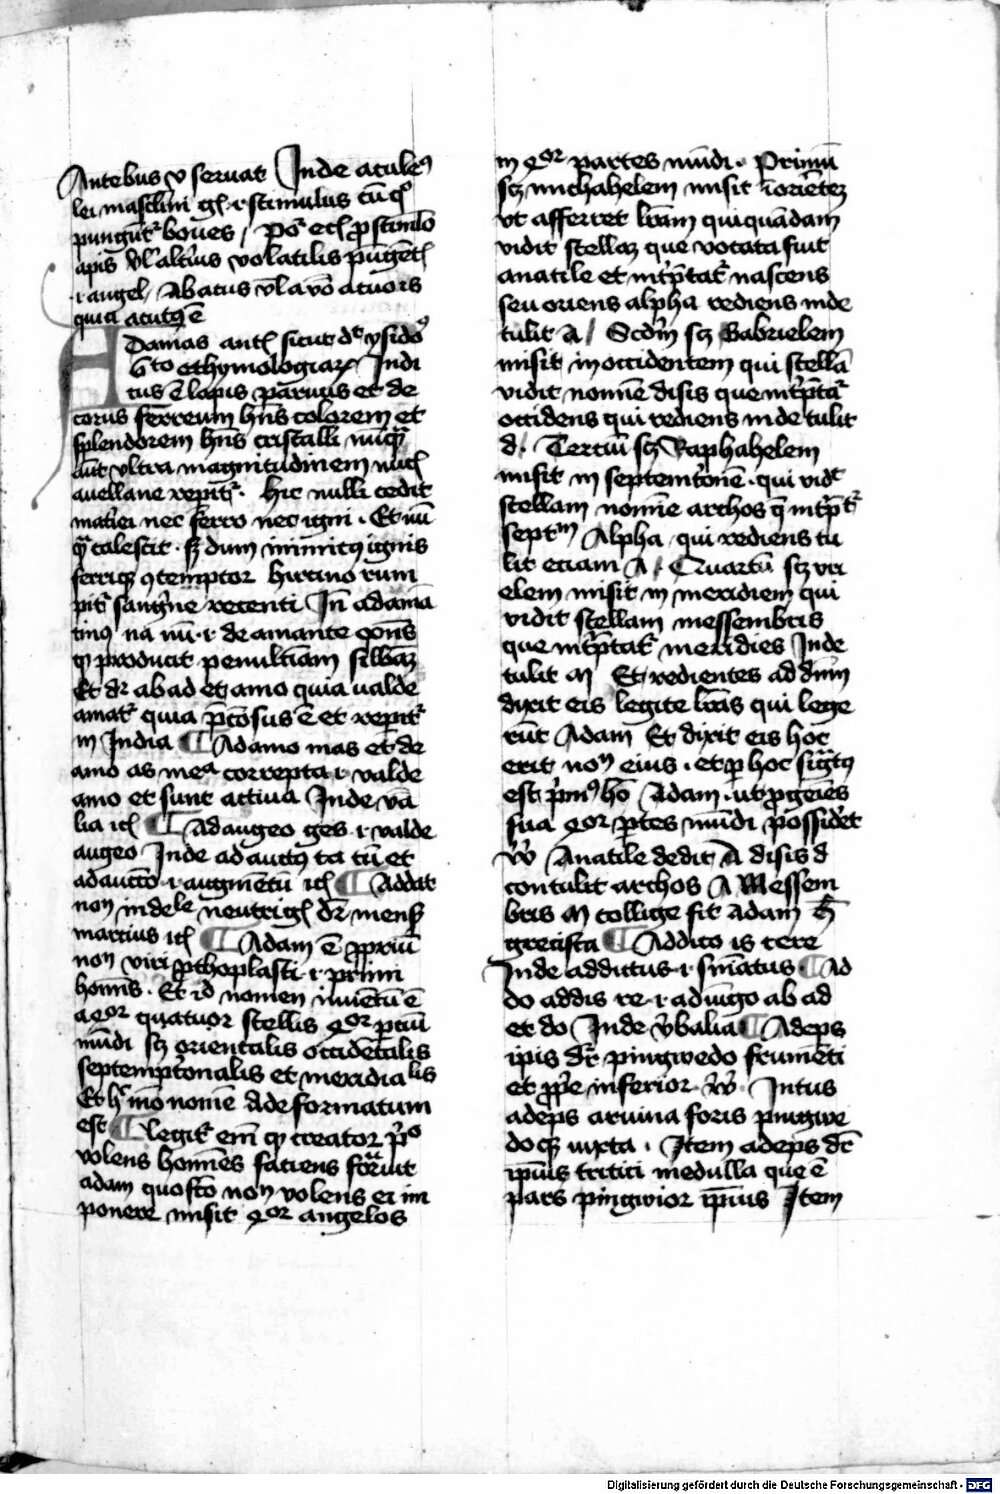 Antebus v seruat Inde aculeꝰ
lei masclini gͥ .i. stimulus cū qͦ
pungūtᷣ boues / Poᷤ ecͥ ꝓ stimlo
apis vl altius volatilis pūgētͥ
.i. angel Abatus vl a vō acuo is
quia acutꝰ ē
Adamas antͥ sicut dᷤ ysidoꝰ
16to ethymologiaꝝ Indi
cus ē lapis paruus et de
corus ferreum hn̄s colorem et
splendorem hn̄s cristalli nūqᷓ
aūt vltra magnitudinem nucͥ
auellane repitᷣ . hic nulli cedit
materiei nec ferro nec igni . Et nū
qᷓ calescit . sꝫ dum inuictꝰ ignis
ferriqꝫ ꝯtemptor hircino rum
pitᷣ sangͥne recenti In̄ adamā
tinꝰ na nū .i. de amante
qͥ producit penultiam sillbaꝫ
Et dᷣ ab ad et amo quia valde
amatᷣ quia p̄cōsus ē et repitᷣ
in India ¶ Adamo mas et de
amo as meᷓ correpta .i. valde
amo et sunt actiua Inde vā
lia icͥ ¶ Adaugeo ges .i. valde
augeo Inde adauctꝰ ta tū et
adauctō .i. augmētū icͥ ¶ Addar
non indele neutrigͥ dᷣ mensꝭ
marcius icͥ ¶ Adam ē ꝓpriū
non viri ꝓthoplasti .i. primi
homīs . Et id nomen inuētū ē
a qͦr quatuor stellis qͦr ptiū
mūdi sꝫ orientalis occidētalis
septemptͥonalis et meridialis
Et hͥ īmo nomē Ade formatum
est ¶ Legitᷣ em̄ qͥ creator pͥo
volens homīes faciens forᷓuit
adam quo fcō non volens ei im
ponere misit qͦr angelos
in qͦr partes mūdi . Primū
sꝫ michahelem misit ī oriētꝫ
vt afferret lr̄am qui quādam
vidit stellaꝫ que vocata fuit
anatile et intp̄tatᷣ nascens
seu oriens alpha rediens inde
tulit A / Scd̄m sꝫ Gabrielem
misit in occidentem qui stellā
vidit nomīe disis que intp̄tatᷣ
occidens qui rediens inde tulit
d . Terciū sꝫ Raphahelem
misit in septemtͥonē . qui vidᷤ
stellam nomīe archos q̄ intp̄tᷣ
septᵐ Alpha qui rediens tu
lit eciam A / Quartū sꝫ vri
elem misit in meridiem qui
vidit stellam messembris
que intp̄tatᷣ meridies Inde
tulit M Et redientes ad dn̄m
dixit eis legite lr̄as qui lege
rūt Adam Et dixit eis hoc
erit non eius . et ꝑ hoc siḡtus
est pͥmꝰ hō Adam . ut ꝓgeīes
sua qͦr ꝑtes mūdi possidᷤet
Vͬ Anatile dedit A disis d
contulit archos A Messem
bris M collige fit adam H̄
grecista ¶ Addico is cere
Inde addictus .i. sniatus ¶ Ad
do addis re .i. adiūgo ab ad
et do Inde v̄balia ¶ Adeps
ipis dᷣ pingwedo frumēti
et ꝓpͥe inferior . Vͬ Intus
adeps aruina foris pingwe
doqꝫ iuxta . Item adeps dᷣ
ip̄ius tritici medulla que ē
pars pingwior ip̄ius Item
Digitalisierung gefördert durch die Deutsche Forschungsgemeinschaft - DFG